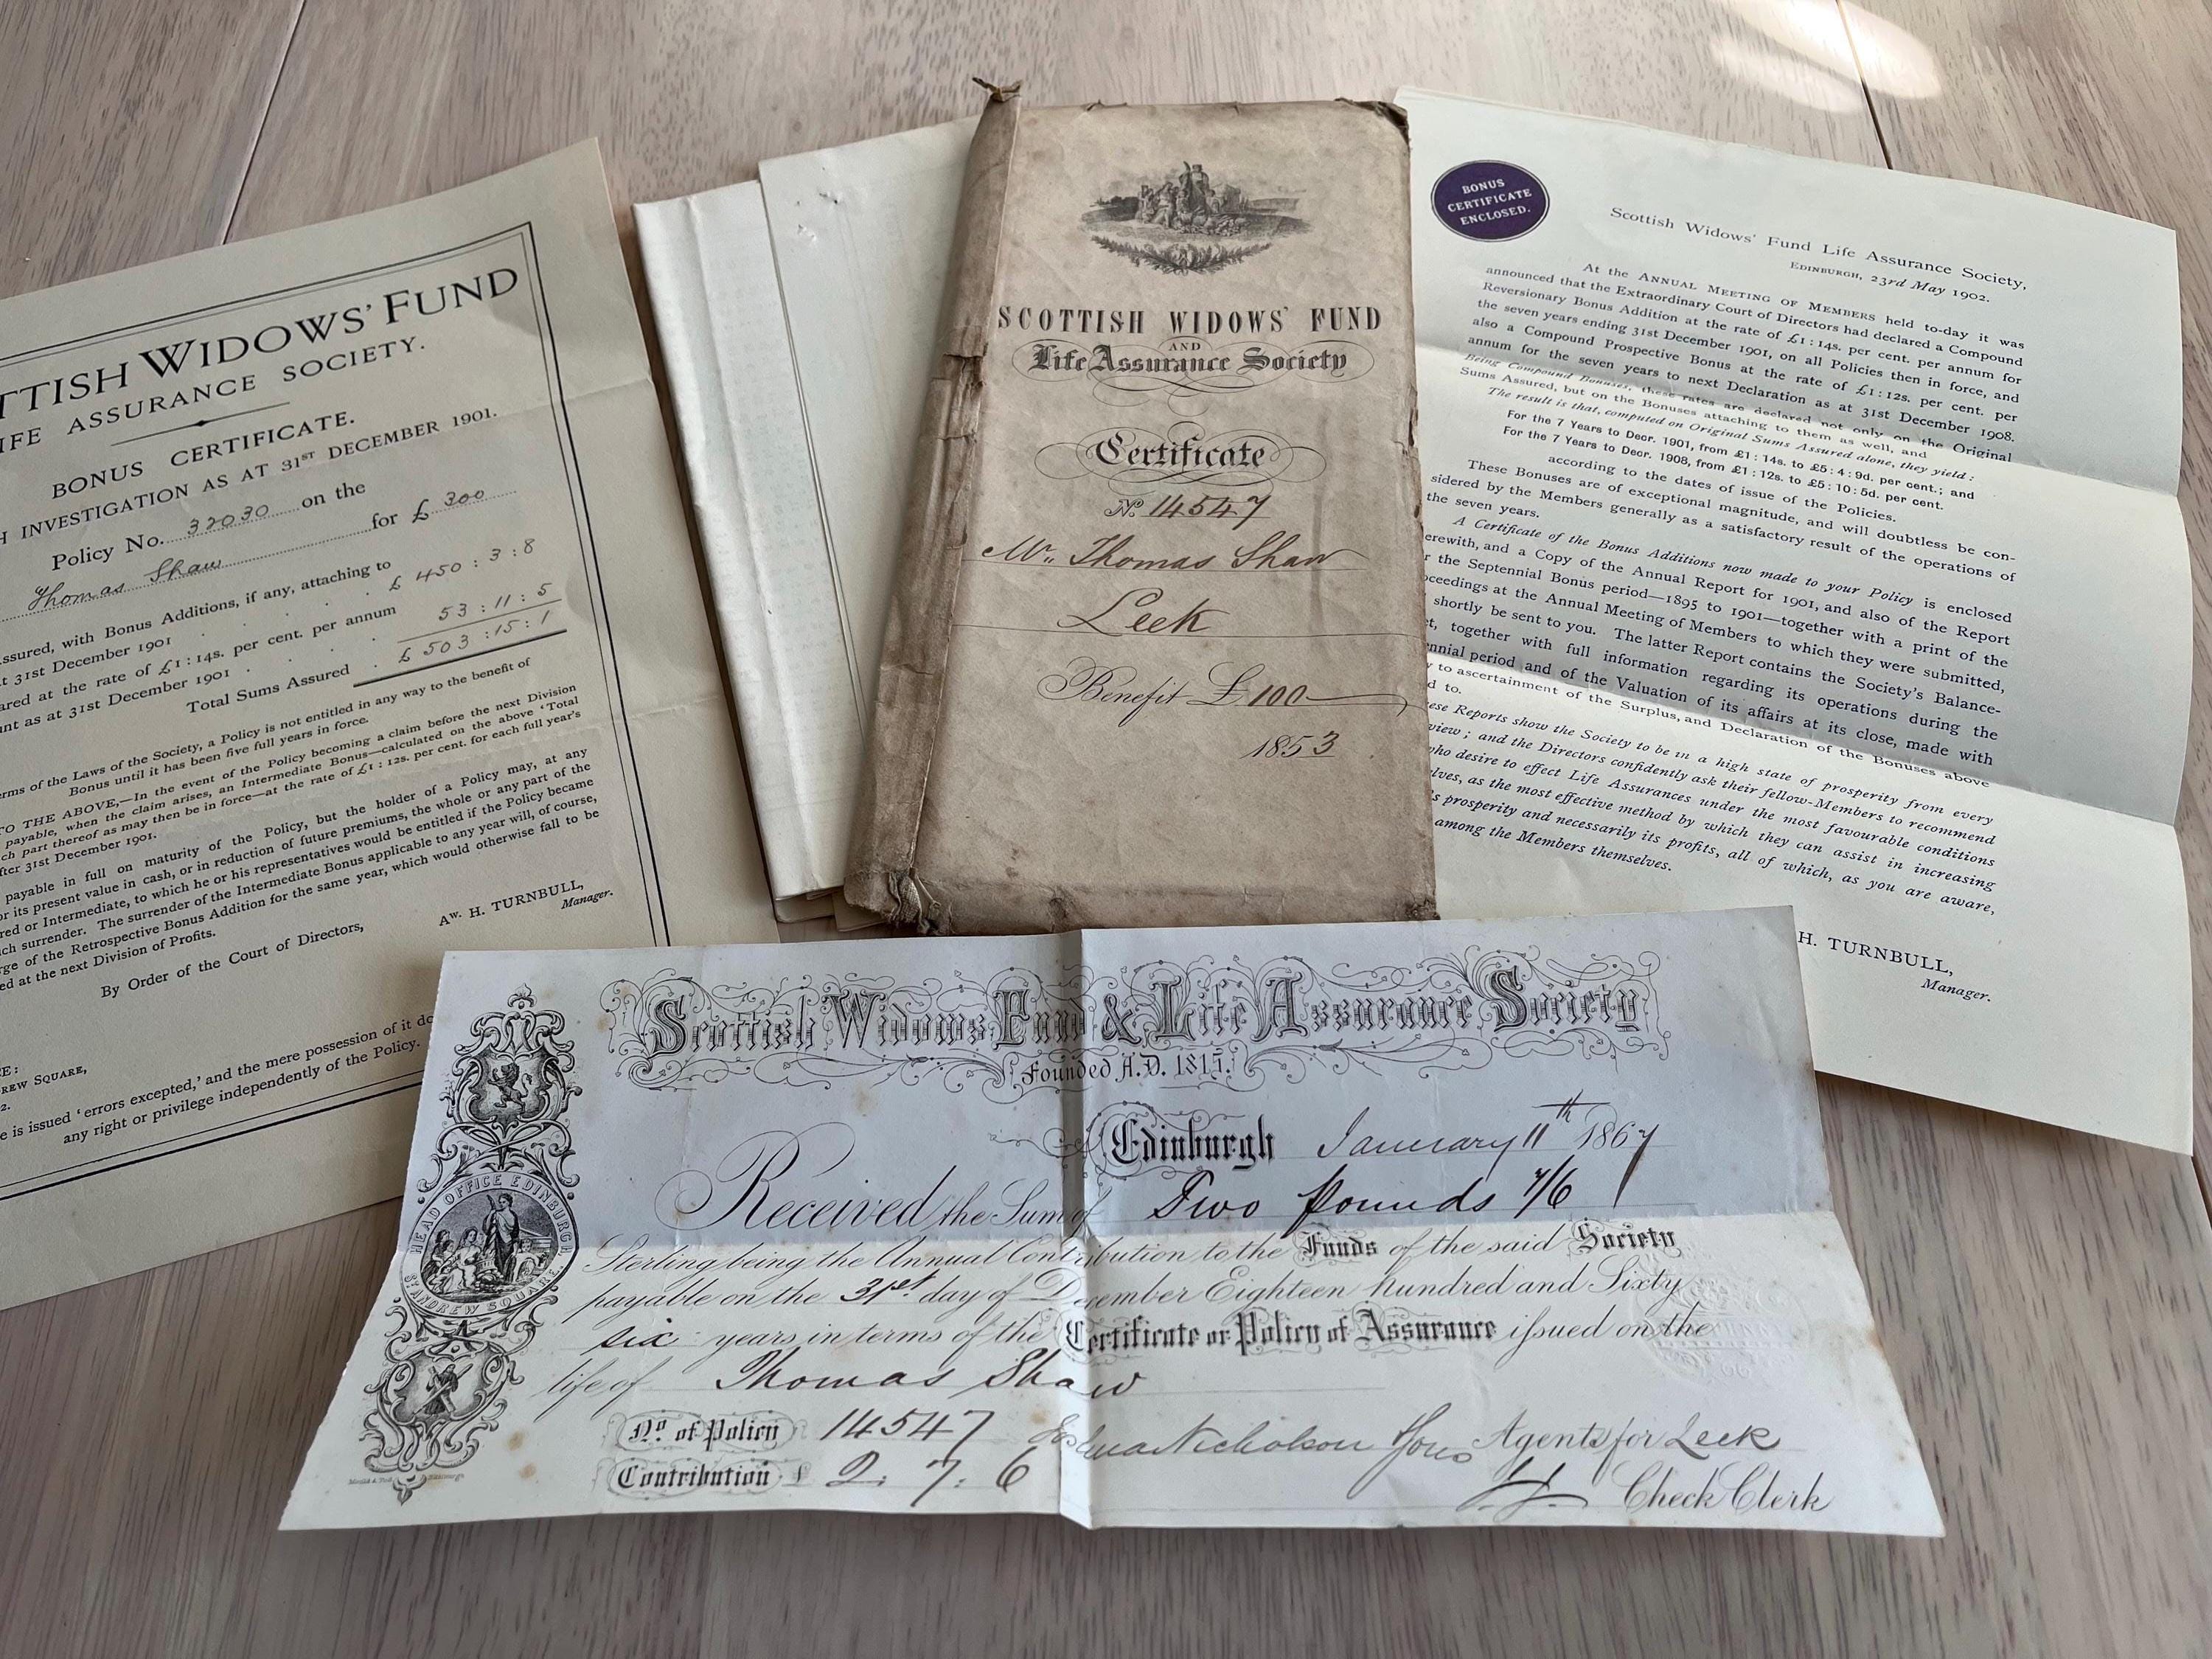 TTISH WIDOWS' FUND
IFE ASSURANCE SOCIETY.
BONUS CERTIFICATE.
H INVESTIGATION AS AT 31ST DECEMBER 1901.
Policy No. 32030 on the
Thomas Shaw for £ 300
ssured, with Bonus Additions, if any, attaching to
t 31st December 1901 . . . £ 450 : 3 : 8
ared at the rate of £1 : 14s. per cent. per annum
nt as at 31st December 1901 . . . 53 : 11 : 5
Total Sums Assured . £ 503 : 15 : 1
erms of the Laws of the Society, a Policy is not entitled in any way to the benefit of
Bonus until it has been five full years in force.
TO THE ABOVE,—In the event of the Policy becoming a claim before the next Division
payable, when the claim arises, an Intermediate Bonus—calculated on the above 'Total
ch part thereof as may then be in force—at the rate of £1 : 12s. per cent. for each full year's
fter 31st December 1901.
payable in full on maturity of the Policy, but the holder of a Policy may, at any
or its present value in cash, or in reduction of future premiums, the whole or any part of the
red or Intermediate, to which he or his representatives would be entitled if the Policy became
ch surrender. The surrender of the Intermediate Bonus applicable to any year will, of course,
rge of the Retrospective Bonus Addition for the same year, which would otherwise fall to be
ed at the next Division of Profits.
By Order of the Court of Directors,
AW. H. TURNBULL,
Manager.
E:
REW SQUARE,
2.
e is issued 'errors excepted,' and the mere possession of it do
any right or privilege independently of the Policy.
SCOTTISH WIDOWS' FUND
AND
Life Assurance Society
Certificate
No. 14547
Mr. Thomas Shaw
Leek
Benefit £ 100
1853
BONUS
CERTIFICATE
ENCLOSED.
Scottish Widows' Fund Life Assurance Society,
EDINBURGH, 23rd May 1902.
At the ANNUAL MEETING OF MEMBERS held to-day it was
announced that the Extraordinary Court of Directors had declared a Compound
Reversionary Bonus Addition at the rate of £1 : 14s. per cent. per annum for
the seven years ending 31st December 1901, on all Policies then in force, and
also a Compound Prospective Bonus at the rate of £1 : 12s. per cent. per
annum for the seven years to next Declaration as at 31st December 1908.
Being Compound Bonuses, these rates are declared not only on the Original
Sums Assured, but on the Bonuses attaching to them as well, and
The result is that, computed on Original Sums Assured alone, they yield :
For the 7 Years to Decr. 1901, from £1 : 14s. to £5 : 4 : 9d. per cent.; and
For the 7 Years to Decr. 1908, from £1 : 12s. to £5 : 10 : 5d. per cent.
according to the dates of issue of the Policies.
These Bonuses are of exceptional magnitude, and will doubtless be con-
sidered by the Members generally as a satisfactory result of the operations of
the seven years.
A Certificate of the Bonus Additions now made to your Policy is enclosed
erewith, and a Copy of the Annual Report for 1901, and also of the Report
r the Septennial Bonus period—1895 to 1901—together with a print of the
oceedings at the Annual Meeting of Members to which they were submitted,
shortly be sent to you. The latter Report contains the Society's Balance-
et, together with full information regarding its operations during the
ennial period and of the Valuation of its affairs at its close, made with
y to ascertainment of the Surplus, and Declaration of the Bonuses above
d to.
ese Reports show the Society to be in a high state of prosperity from every
view ; and the Directors confidently ask their fellow-Members to recommend
ho desire to effect Life Assurances under the most favourable conditions
lves, as the most effective method by which they can assist in increasing
s prosperity and necessarily its profits, all of which, as you are aware,
among the Members themselves.
H. TURNBULL,
Manager.
Scottish Widows Fund & Life Assurance Society
Founded A.D. 1815.
Edinburgh January 11th 1867
Received the Sum of Two pounds 7/6
Sterling being the Annual Contribution to the Funds of the said Society
payable on the 31st day of December Eighteen hundred and Sixty
six years in terms of the Certificate or Policy of Assurance issued on the
life of Thomas Shaw
No. of Policy 14547
Nicholson Agents for Leek
Contribution £ 2 : 7 : 6
Check Clerk
HEAD OFFICE EDINBURGH
ST ANDREW SQUARE